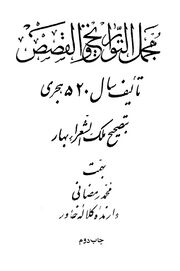 مجمل التواریخ و القصص
تألیف سال ۵۲۰ هجری
بتصحیح ملک الشعراء بهار
بهمت
محمد رمضانی
دارنده کلاله خاور
چاپ دوم